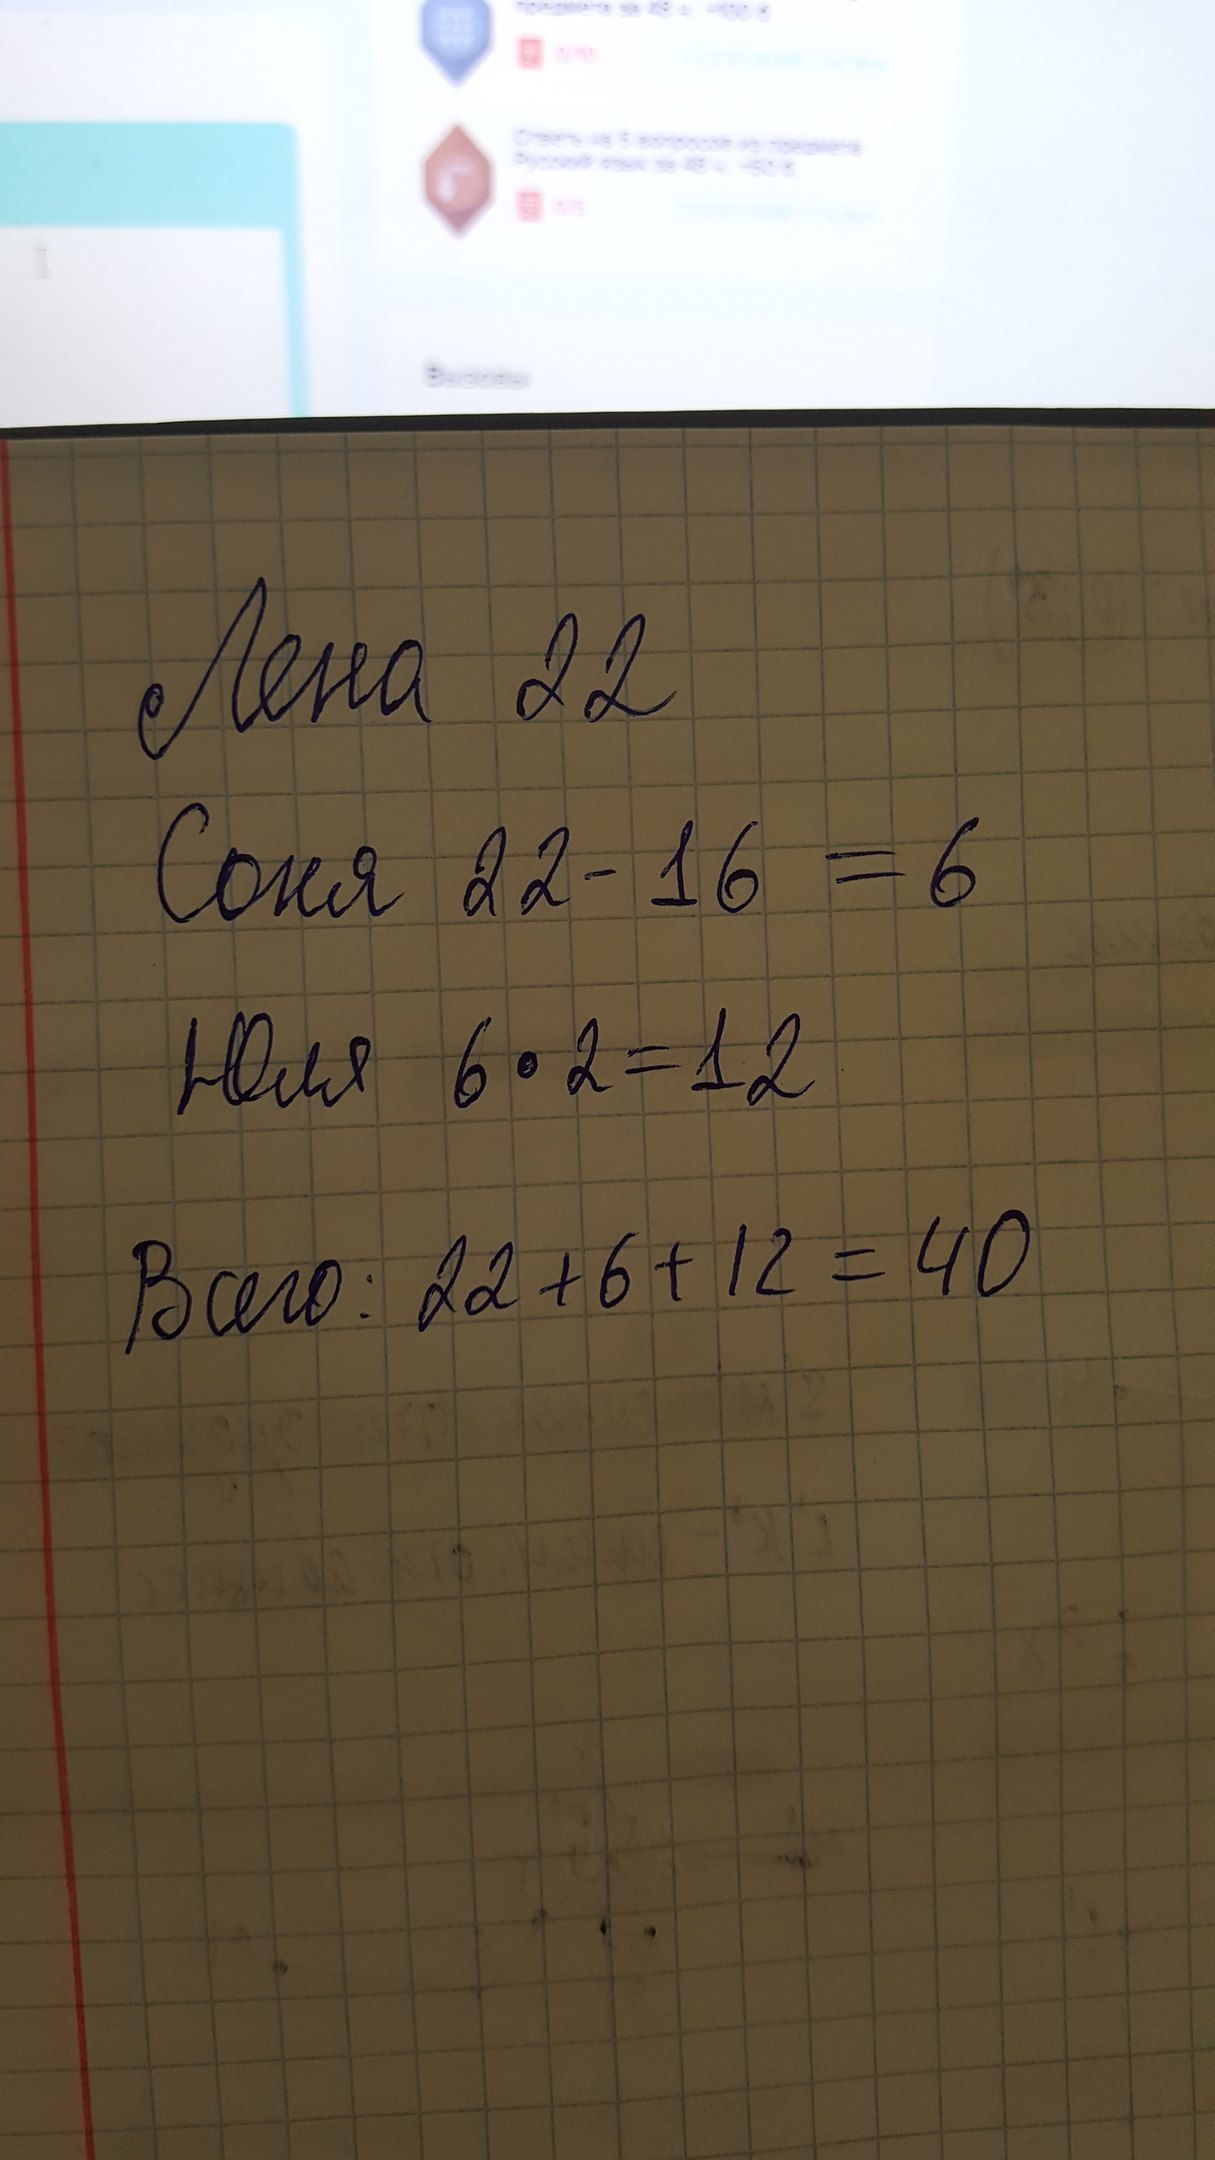 предмета за 48 ч. +100 б
0/10
Ответь на 5 вопросов из предмета
Русский язык за 48 ч. +50 б
0/5
1
Вызовы
Лена 22
Соня 22 - 16 = 6
Юля 6 • 2 = 12
Всего: 22 + 6 + 12 = 40